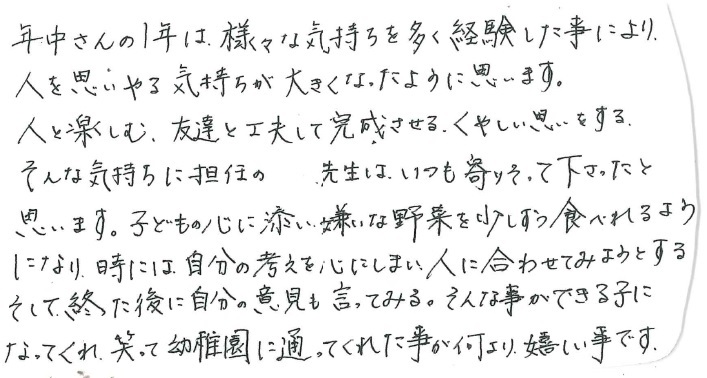 年中さんの1年は、様々な気持ちを多く経験した事により、
人を思いやる気持ちが大きくなったように思います。
人と楽しむ、友達と工夫して完成させる、くやしい思いをする、
そんな気持ちに担任の 先生は、いつも寄りそって下さったと
思います。子どもの心に添い、嫌いな野菜を少しずつ食べれるよう
になり、時には、自分の考えを心にしまい、人に合わせてみようとする
そして、終った後に自分の意見も言ってみる。そんな事ができる子に
なってくれ、笑って幼稚園に通ってくれた事が何より、嬉しい事です。